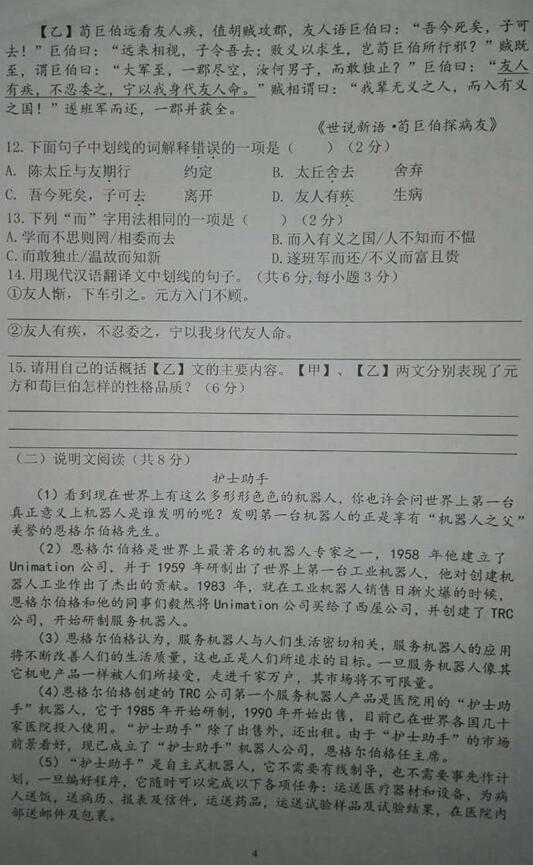 【乙】荀巨伯远看友人疾，值胡贼攻郡，友人语巨伯曰：“吾今死矣，子可
去！”巨伯曰：“远来相视，子令吾去；败义以求生，岂荀巨伯所行邪？”贼既
至，谓巨伯曰：“大军至，一郡尽空，汝何男子，而敢独止？”巨伯曰：“友人
有疾，不忍委之，宁以我身代友人命。”贼相谓曰：“我辈无义之人，而入有义
之国！”遂班军而还，一郡并获全。
《世说新语·荀巨伯探病友》
12.下面句子中划线的词解释错误的一项是（ ）（2分）
A. 陈太丘与友期行 约定 B. 太丘舍去 舍弃
C. 吾今死矣，子可去 离开 D. 友人有疾 生病
13.下列“而”字用法相同的一项是（ ）（2分）
A.学而不思则罔/相委而去 B.而入有义之国/人不知而不愠
C.而敢独止/温故而知新 D.遂班军而还/不义而富且贵
14.用现代汉语翻译文中划线的句子。（共6分,每小题3分）
①友人惭，下车引之。元方入门不顾。
②友人有疾，不忍委之，宁以我身代友人命。
15.请用自己的话概括【乙】文的主要内容。【甲】、【乙】两文分别表现了元
方和荀巨伯怎样的性格品质？（6分）
（二）说明文阅读（共8分）
护士助手
（1）看到现在世界上有这么多形形色色的机器人，你也许会问世界上第一台
真正意义上机器人是谁发明的呢？发明第一台机器人的正是享有“机器人之父”
美誉的恩格尔伯格先生。
（2）恩格尔伯格是世界上最著名的机器人专家之一，1958 年他建立了
Unimation 公司，并于 1959 年研制出了世界上第一台工业机器人，他对创建机
器人工业作出了杰出的贡献。1983 年，就在工业机器人销售日渐火爆的时候，
恩格尔伯格和他的同事们毅然将 Unimation 公司买给了西屋公司，并创建了 TRC
公司，开始研制服务机器人。
（3）恩格尔伯格认为，服务机器人与人们生活密切相关，服务机器人的应用
将不断改善人们的生活质量，这也正是人们所追求的目标。一旦服务机器人像其
它机电产品一样被人们所接受，走进千家万户，其市场将不可限量。
（4）恩格尔伯格创建的TRC公司第一个服务机器人产品是医院用的“护士助
手”机器人，它于1985年开始研制，1990年开始出售，目前已在世界各国几十
家医院投入使用。“护士助手”除了出售外，还出租。由于“护士助手”的市场
前景看好，现已成立了“护士助手”机器人公司，恩格尔伯格任主席。
（5）“护士助手”是自主式机器人，它不需要有线制导，也不需要事先作计
划，一旦编好程序，它随时可以完成以下各项任务：运送医疗器材和设备，为病
人送饭，送病历、报表及信件，运送药品，运送试验样品及试验结果，在医院内
部送邮件及包裹。
4